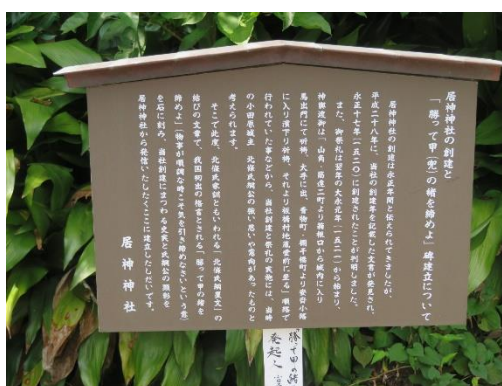 居神神社の創建と
「勝って甲(兜)の緒を締めよ」碑建立について
居神神社の創建は永正年間と伝えられてきましたが、
平成二十八年に、当社の創建年を記載した文書が発見され、
永正十七年(一五二〇)に創建されたことが判明しました。
また、御祭礼は翌年の大永元年(一五二一)から始まり、
神輿渡御は、山角、筋違二町より箱根口から城内に入り
馬出門にて祈祷、大手に出、
に入り濱下り祈祷、それより板橋村地蔵堂前に至る」順路で
行われていた事などから、当社創建と祭礼の実施には、当時
の小田原城主 北條氏綱公の強い思いや意向があったものと
考えられます。
そこで此度、北條氏家訓ともいわれる「北條氏綱置文」の
結びの文章で、我国初出の格言とされる「勝って甲の緒を
締めよ」(物事が順調な時こそ気を引き締めなさいという意)
を石に刻み、当社創建にまつわる史実と氏綱公の顕彰を
居神神社から発信いたしたくここに建立したしだいです。
居神神社